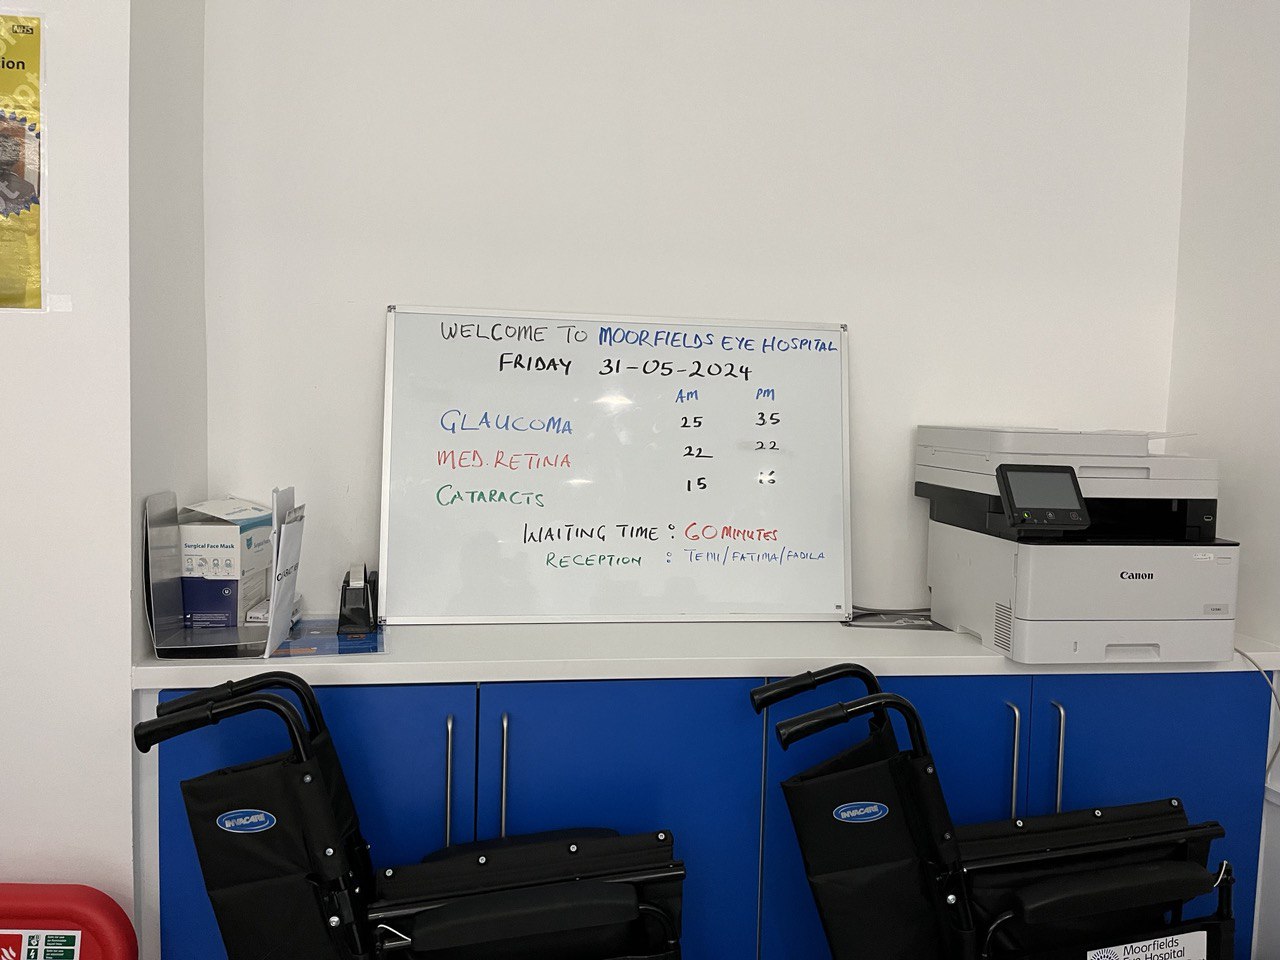 NHS
ion
WELCOME TO MOORFIELDS EYE HOSPITAL
FRIDAY 31-05-2024
AM PM
GLAUCOMA 25 35
MED. RETINA 22 22
CATARACTS 15 16
WAITING TIME : 60 MINUTES
RECEPTION : TEMI/FATIMA/FADILA
Surgical Face Mask
Canon
INVACARE
INVACARE
Moorfields
Eye Hospital